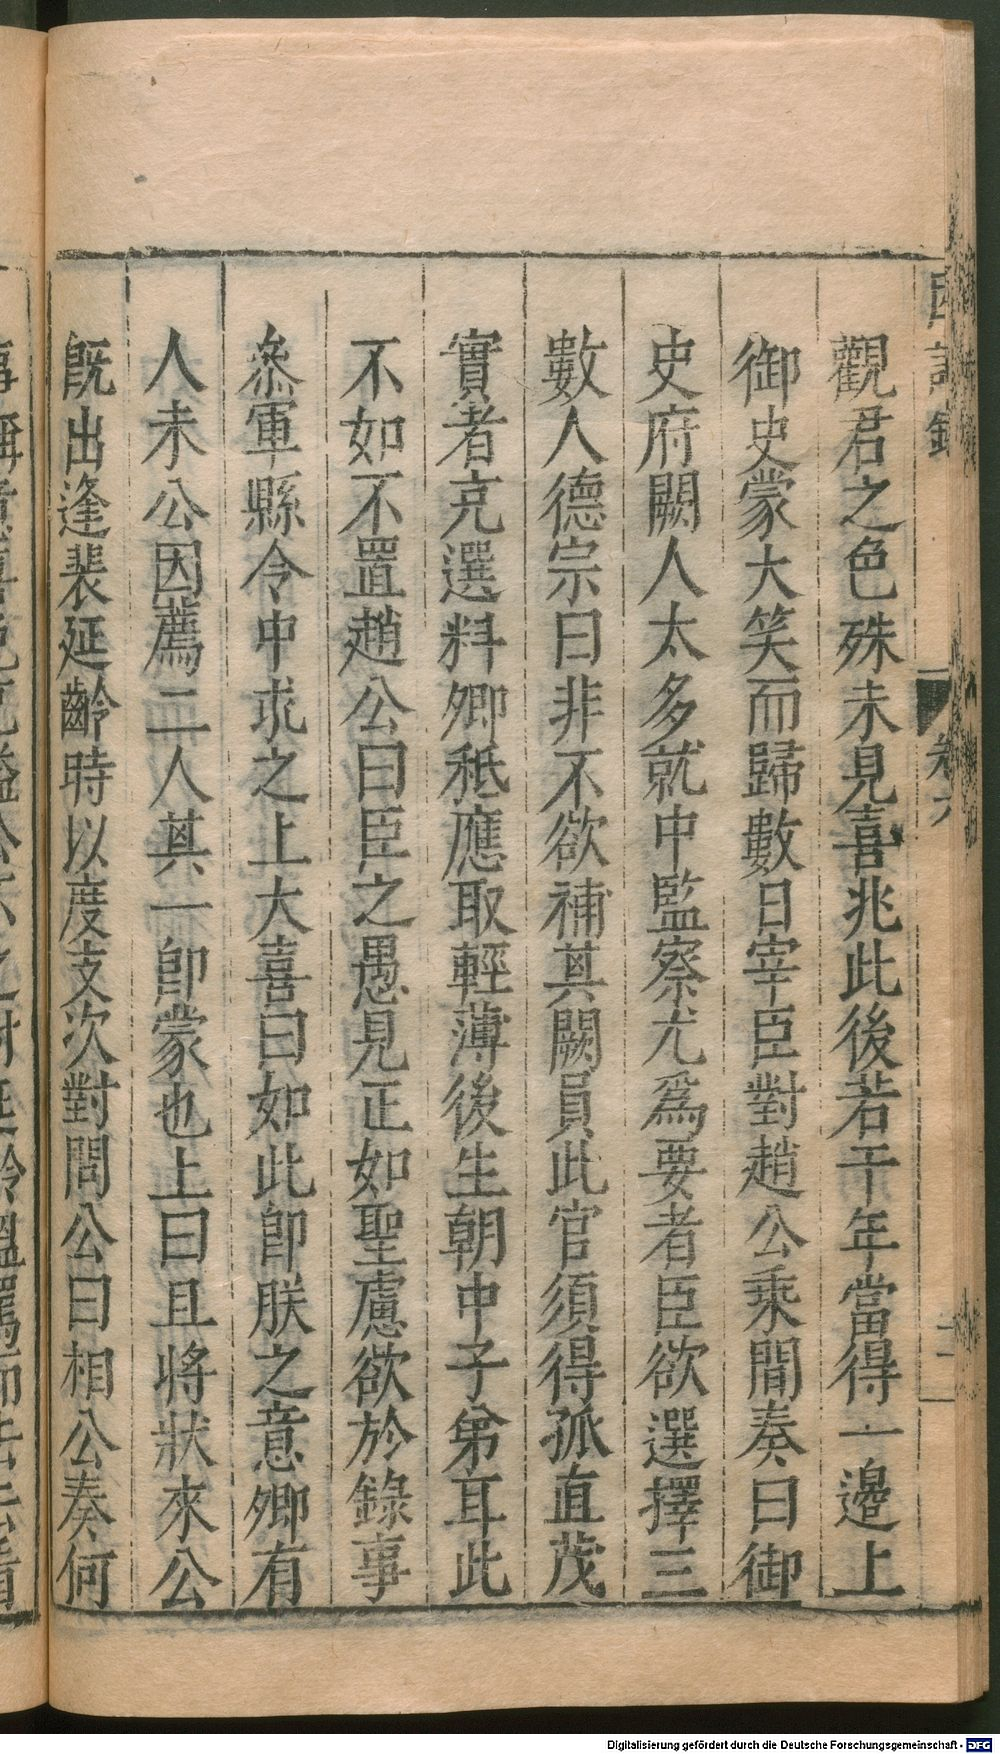 觀君之色殊未見喜兆此後若干年當得一邊上
御史蒙大笑而歸數日宰臣對趙公乘間奏曰御
史府闕人太多就中監察尤爲要者臣欲選擇三
數人德宗曰非不欲補其闕員此官須得孤直茂
實者充選料卿秖應取輕薄後生朝中子弟耳此
不如不置趙公曰臣之愚見正如聖慮欲於錄事
叅軍縣令中求之上大喜曰如此卽朕之意卿有
人未公因薦二人其一卽蒙也上曰且將狀來公
旣出逢裴延齡時以度支次對問公曰相公奏何
卷六
Digitalisierung gefördert durch die Deutsche Forschungsgemeinschaft - DFG